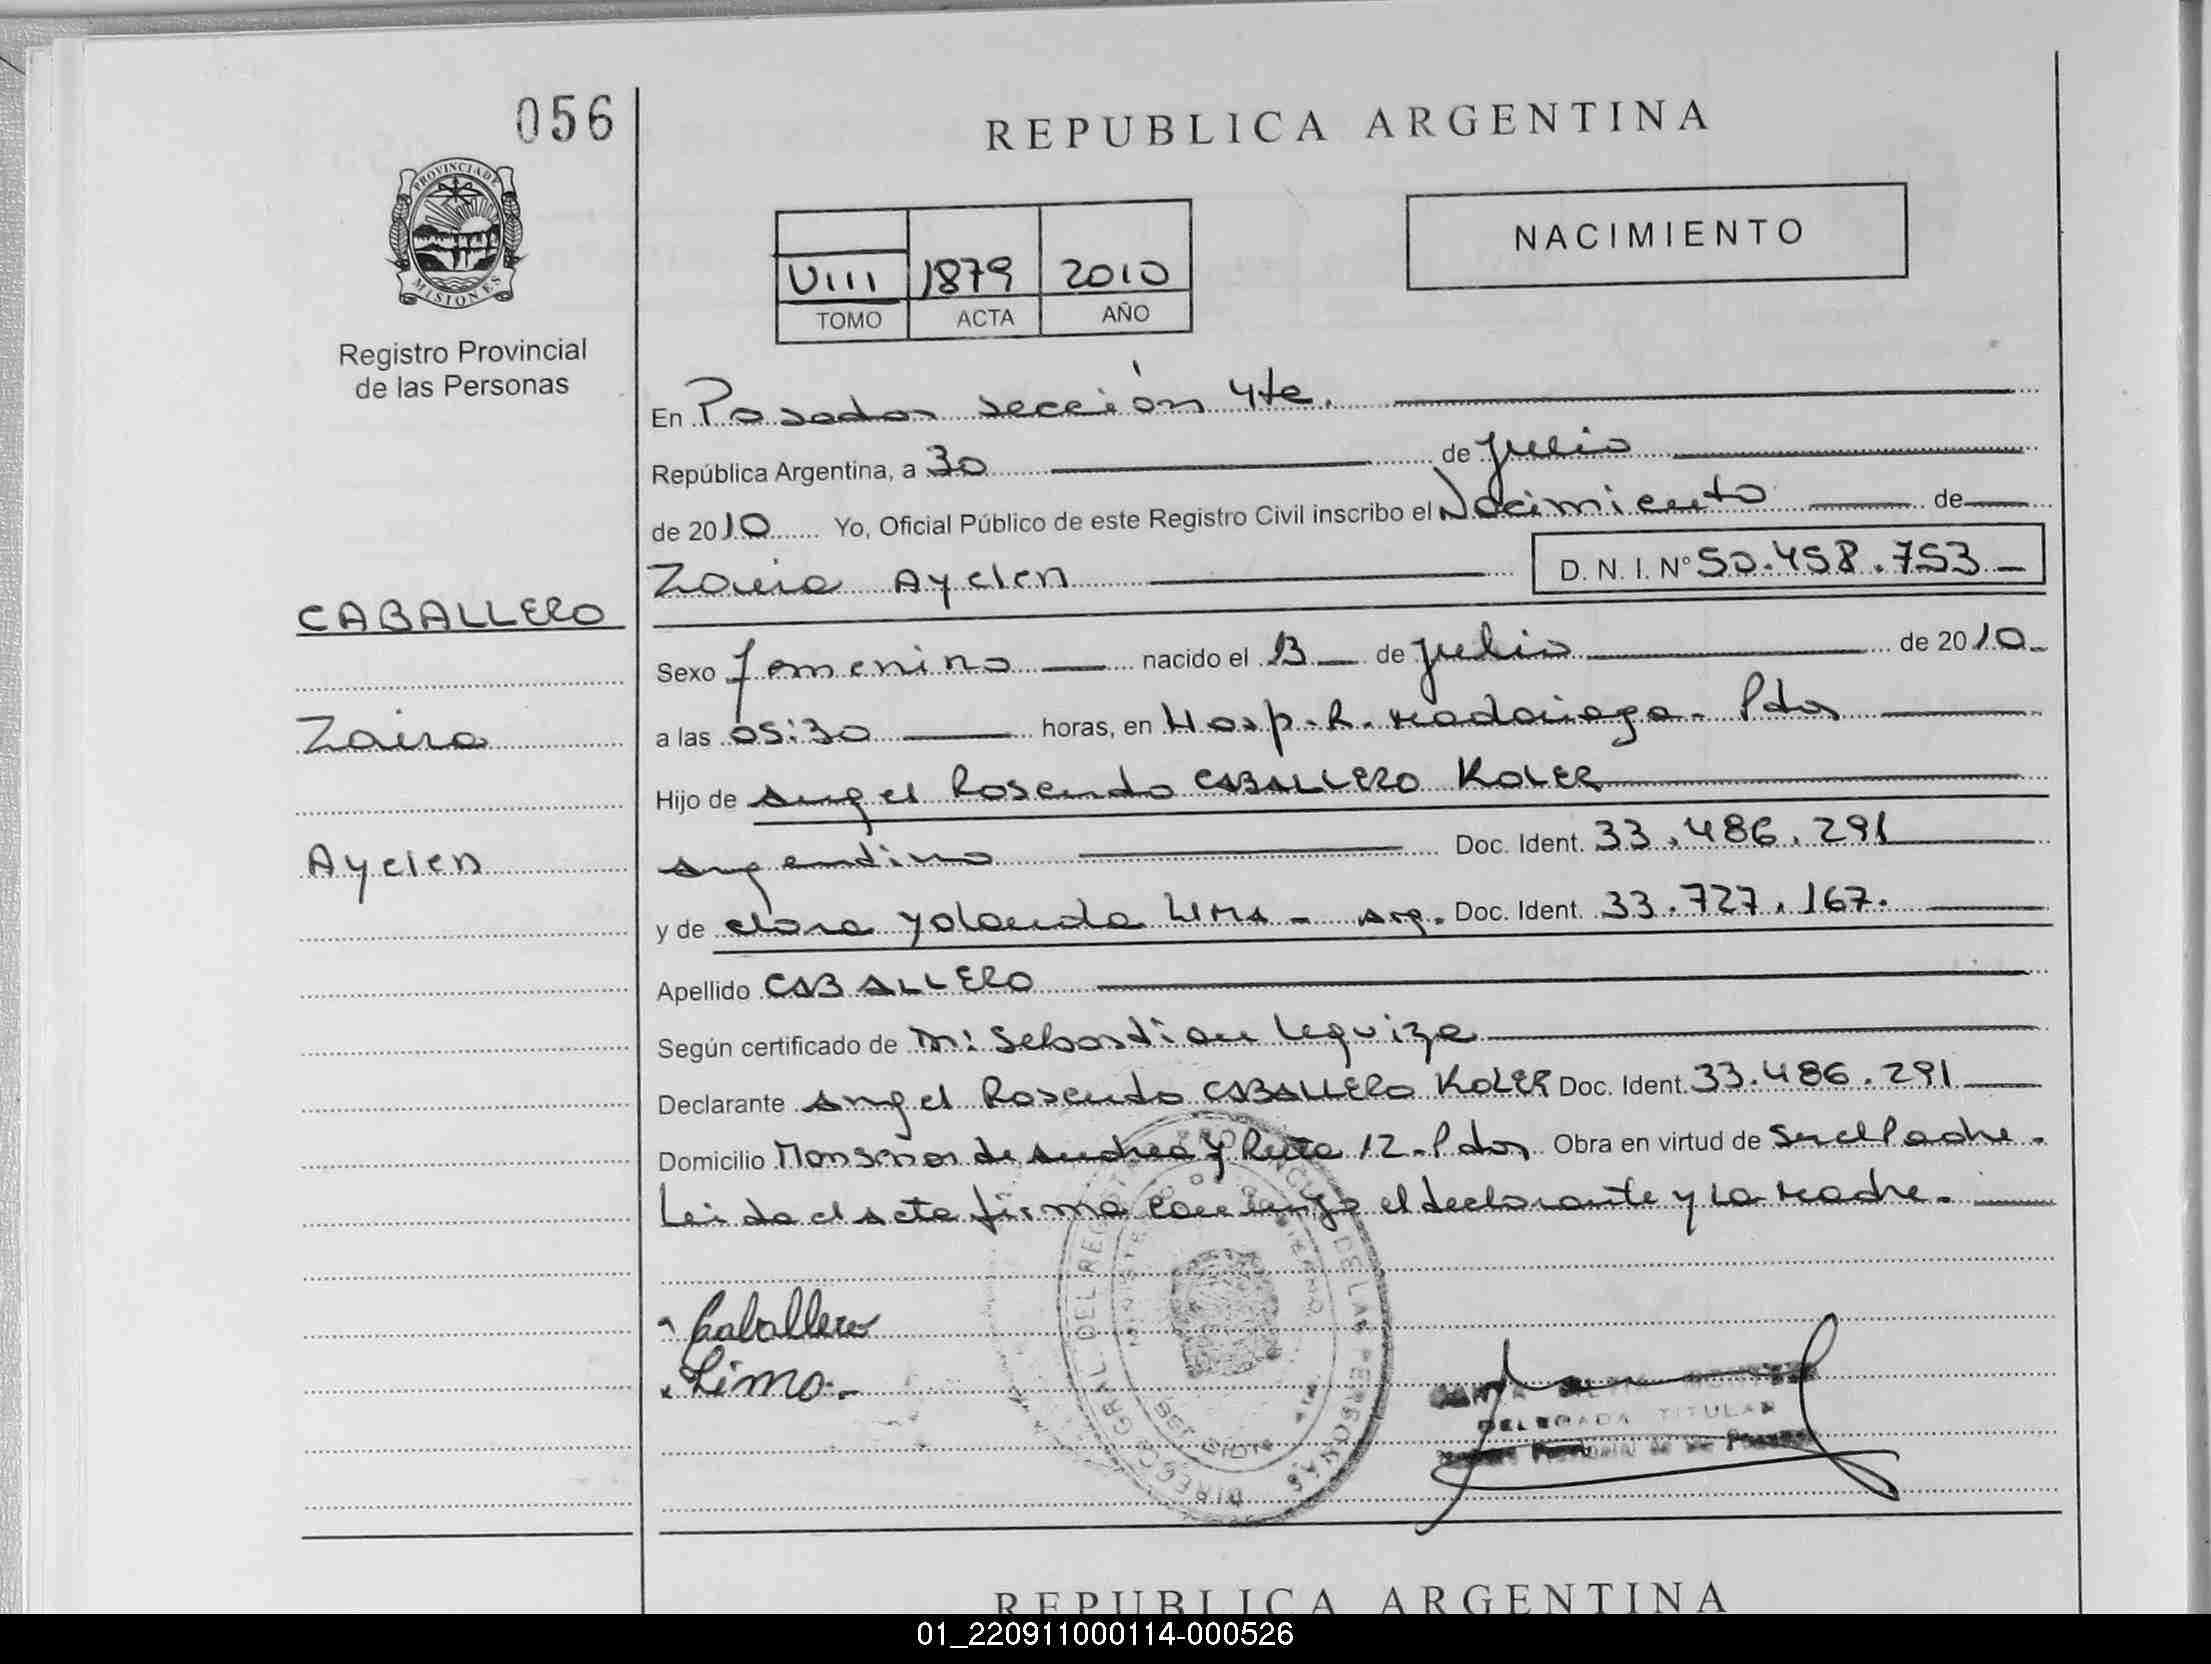 056
REPUBLICA ARGENTINA
PROVINCIA DE
MISIONES
NACIMIENTO
VIII 1879 2010
TOMO ACTA AÑO
Registro Provincial
de las Personas
En Posadas sección 4ta.
República Argentina, a 30 de Julio
de 2010 Yo, Oficial Público de este Registro Civil inscribo el Nacimiento de
Zaira Ayelen D. N. I. Nº 50.458.753
CABALLERO
Zaira
Ayelen
Sexo femenino nacido el 13 de julio de 2010
a las 05:30 horas, en Hosp. R. Madariaga - Pdas
Hijo de Angel Rosendo CABALLERO KOLER
argentino Doc. Ident. 33.486.291
y de Clara Yolanda LIMA - Arg. Doc. Ident. 33.727.167.
Apellido CABALLERO
Según certificado de M: Sebastian Leguiza
Declarante Angel Rosendo CABALLERO KOLER Doc. Ident. 33.486.291
Domicilio Monseñor de Andrea y Ruta 12 - Pdas Obra en virtud de ser el Padre.
Leida el acta firma conmigo el declarante y la Madre.
Caballero
Lima.-
DIRECC. GRAL. DEL REGISTRO PROVINCIAL DE LAS PERSONAS
MINISTERIO DE GOBIERNO
MISIONES
DELEGADA TITULAR
Provincial de las Personas
REPUBLICA ARGENTINA
01_220911000114-000526